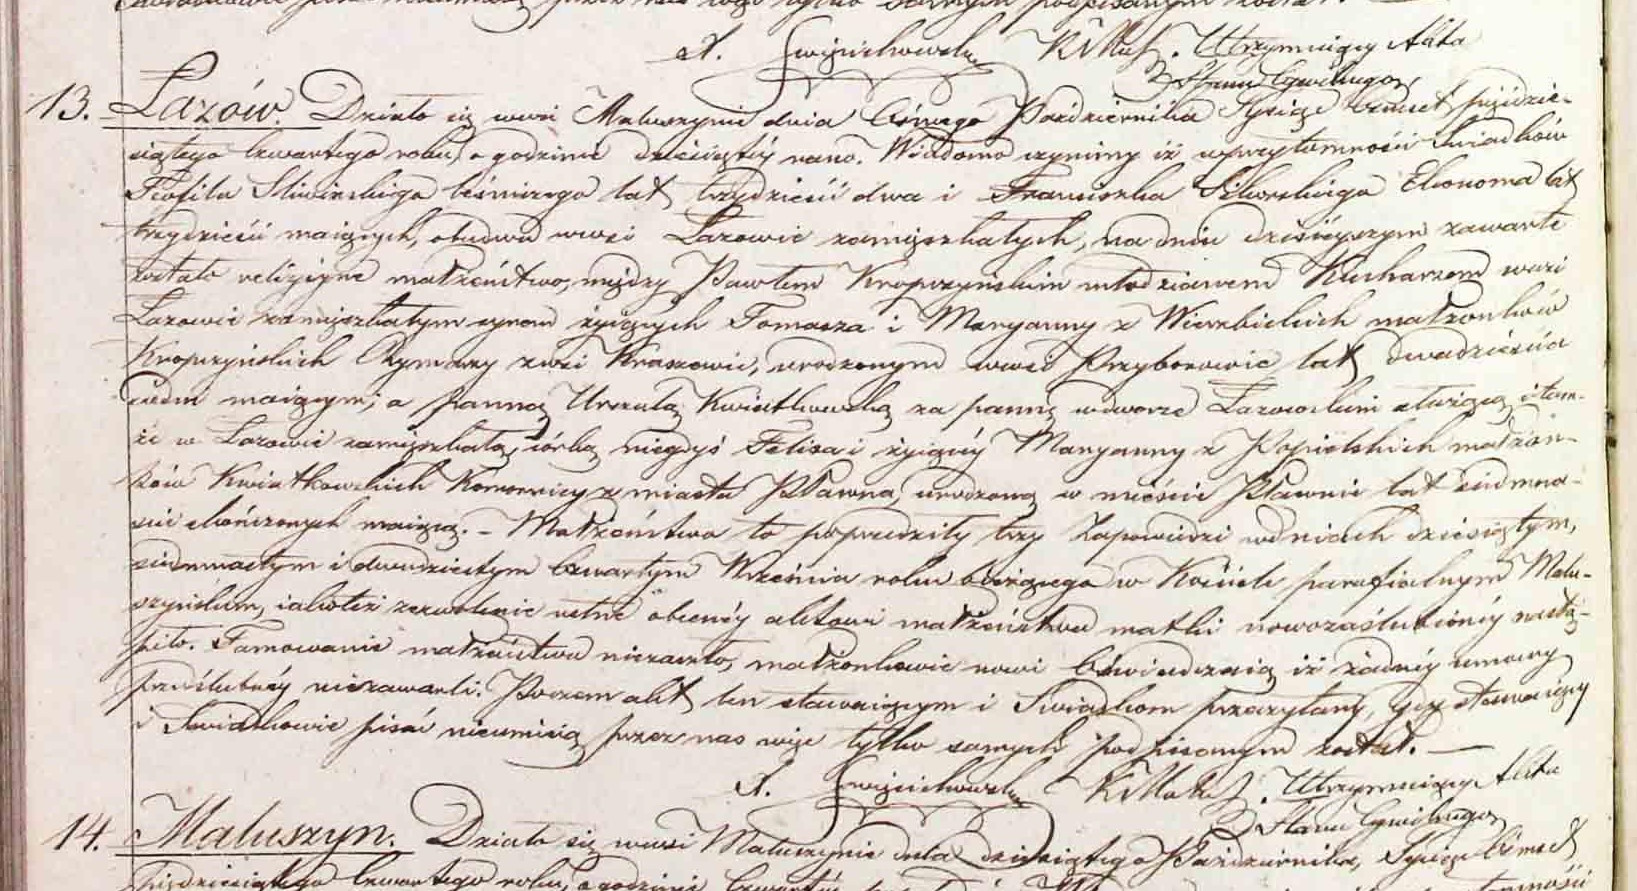 samym podpisanym został.
X. Święcichowski K. M. Utrzymuiący Akta
Stanu Cywilnego
13. Łazów. Działo się wewsi Maluszynie dnia ósmego Października Tysiąc ośmset pięćdzie-
siątego czwartego roku, o godzinie dziesiątéy rano. Wiadomo czynimy iż wprzytomności Świadków
Teofila Sliwinskiego leśniczego lat trzydzieści dwa i Franciszka Sikorskiego Ekonoma lat
trzydzieści maiących, obudwu wewsi Łazowie zamięszkałych, na dniu dzisieyszym zawarte
zostało religiyne małżeństwo, między Pawłem Kropczyńskim młodzianem Kucharzem wewsi
Łazowie zamięszkałym synem żyiących Tomasza i Maryanny z Wierzbickich małżonków
Kropczyńskich Rymarzy zwsi Kraszowic, urodzonym wewsi Przyborowie lat dwadzieścia
siedm maiącym; a Panną Urszulą Kwiatkowską za pannę wdworze Łazowskim służącą i tam-
że w Łazowie zamięszkałą, córką niegdyś Felixa i żyiącéy Maryanny z Popielskich małżon-
ków Kwiatkowskich Komornicy z miasta Pławna, urodzoną w mieście Pławnie lat siedmna-
ście skończonych maiącą. - Małżeństwo to poprzedziły trzy Zapowiedzi wdniach dziesiątym,
siedmnastym i dwudziestym czwartym Września roku bieżącego w Kościele parafialnym Malu-
szyńskim, iakoteż zezwolenie ustne obecnéy aktowi małżeństwa matki nowozaślubionéy nastą-
piło. Tamowanie małżeństwa niezaszło, małżonkowie nowi oświadczaią iż żadnéy umowy
przedślubnéy niezawarli. Poczem akt ten stawaiącym i Świadkom przeczytany, gdy stawaiący
i Świadkowie pisać nieumieią przez nas więc tylko samych podpisanym został. —
X. Święcichowski K. M. Utrzymuiący Akta
Stanu Cywilnego
14. Maluszyn. Działo się wewsi Maluszynie dnia dziesiątego Października, Tysiąc ośmset
pięćdziesiątego czwartego roku, o godzinie czwartéy